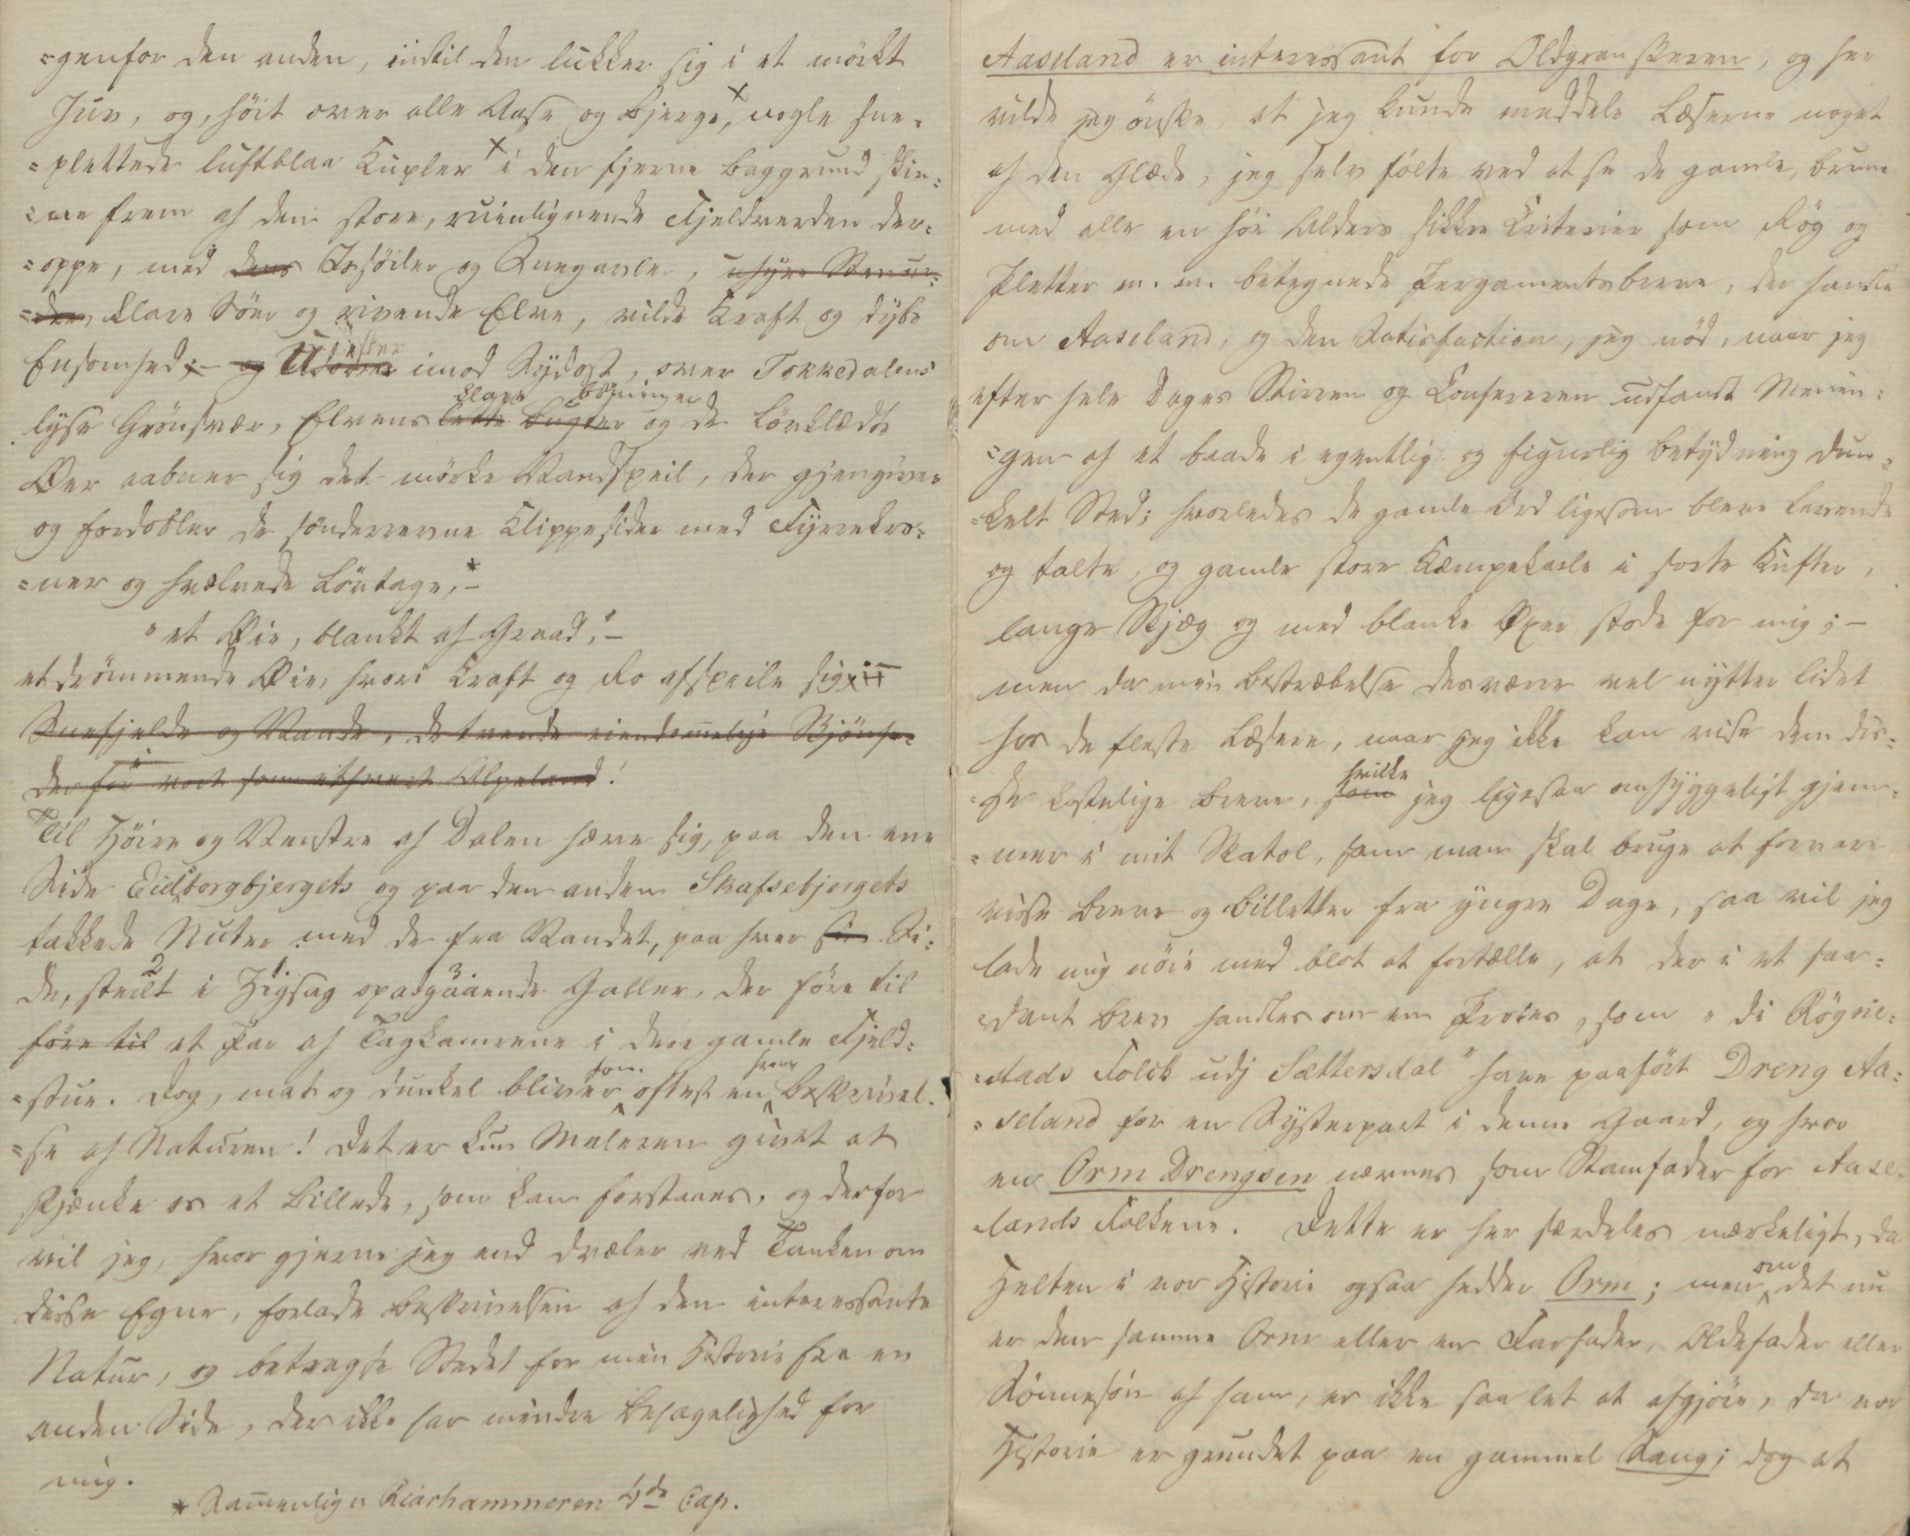 =genfor den anden, indtil den lukker sig i et mörkt
Juv, og, höit over alle Aase og Bjerge, nogle sne=
=plettede luftblaa Kupler i den fjerne Baggrund skin=
=ne frem af den store, ruinlignende Fjeldverden der=
=oppe, med dens Issöiler og Snegavler, uhyre Stenur=
=der, klare Söer og rivende Elve, vilde Kraft og dybe
Ensomhed; – og Udover imod Sydost, over Tokkedalens
lyse Grönsvær, Elvens lette Bugter klare Böininger og de lövklædte
Öer aabner sig det mörke Vandspeil, der gjengiver
og fordobler de sönderrevne Klippesider med Fyrrekro=
=ner og hvælvede Lövtage, –*
"et Öie, blankt af Graad," –
et drömmende Öie, hvori Kraft og Ro afspeile sig
Snefjelde og Vande, de tvende eiendommelige Skjönhe=
der for vort som ethvert Alpeland!
Til Höire og Venstre af Dalen hæve sig, paa den ene
Side Eidsborgbjergets og paa den anden Skafsebjergets
takkede Nuter med de fra Vandet, paa hver sin Si=
de, steilt i Zigsag opadgaaende Galler, der före til
före til et Par af Tagkamrene i den gamle Fjeld=
=stue. Dog, mat og dunkel bliver som oftest en hver Beskrivel=
=se af Naturen! Det er kun Maleren givet at
skjænke os et Billede, som kan forstaaes, og derfor
vil jeg, hvor gjerne jeg end dvæler ved Tanken om
disse Egne, forlade Beskrivelsen af den interessante
Natur, og betragte Stedet for min Historie fra en
anden Side, der ikke har mindre Behagelighed for
mig.
* Sammenlign Kiarhammeren 4de Cap.
Aaseland er interessant for Oldgranskeren, og her
vilde jeg önske at jeg kunde meddele Læserne noget
af den Glæde, jeg selv fölte ved at se de gamle, brune
med alle en höi Alders sikkre Kriterier som Røg og
Pletter m. m. betegnede Pergamentsbreve, der handle
om Aaseland, og den Satisfaction, jeg nöd, naar jeg
efter hele Dages Stirren og Confereren udfandt Menin=
=gen af et baade i egentlig og figurlig Betydning dun=
=kelt Sted; hvorledes de gamle Ord ligesom bleve levende
og talte, og gamle store Kæmpekarle i sorte Kufter,
lange Skjæg og med blanke Öxer stode for mig; –
men da min Bestræbelse desværre vel nytter lidet
hos de fleste Læsere, naar jeg ikke kan vise dem dis=
=se kostelige Breve, som hvilke jeg ligesaa omhyggeligt gjem=
=mer i mit Skatol, som man skal bruge at forvare
visse Breve og Billetter fra yngre Dage, saa vil jeg
lade mig nöie med blot at fortælle, at der i et saa=
=dant Brev handles om en Proces, som "di Rögne=
=stads Folck udj Sættersdal" have paafört Dreng Aa=
=seland for en Systerpart i denne Gaard, og hvor
en Orm Drengsen nævnes som Stamfader for Aase=
=lands Folkene. Dette er her særdeles mærkeligt, da
Helten i vor Historie ogsaa hedder Orm; men om det nu
er den samme Orm eller en Farfader, Oldefader eller
Sönnesön af ham, er ikke saa let at afgjöre, da vor
Historie er grundet paa en gammel Sang; dog at